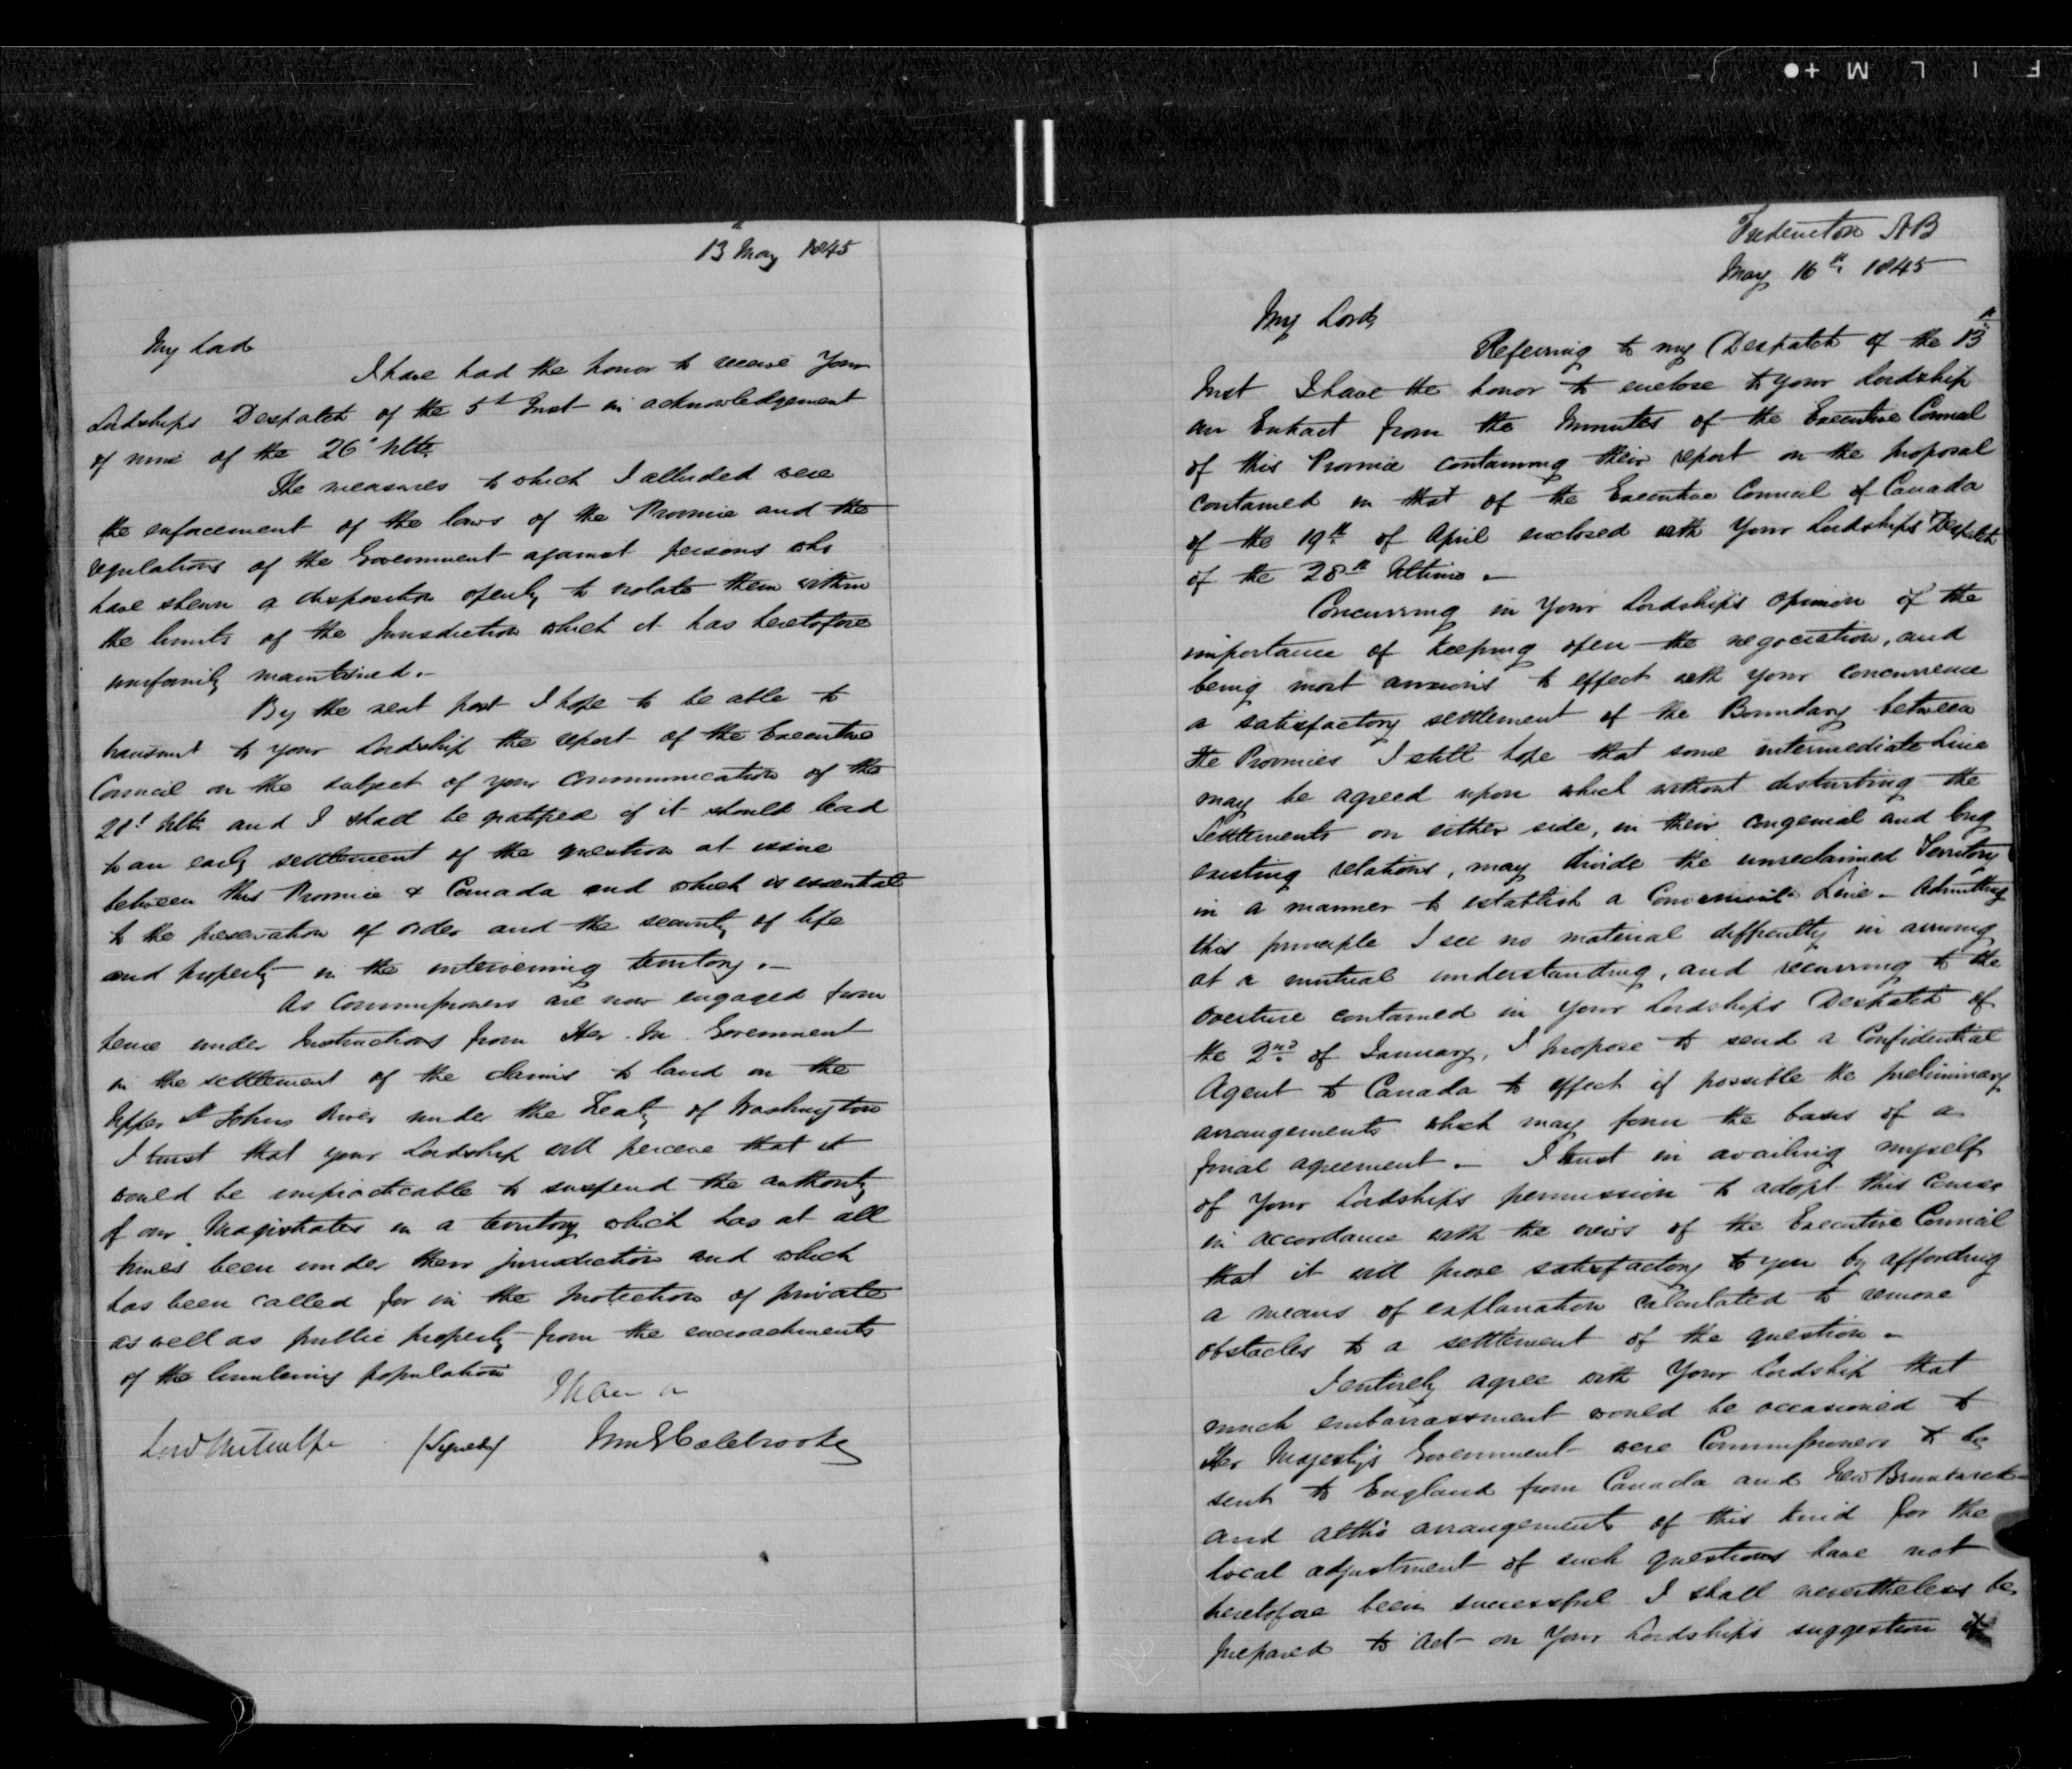 13 May 1845
My Lord
I have had the honor to receive Your
Lordships Despatch of the 5th Inst in acknowledgement
of mine of the 26" Ulto
The measures to which I alluded were
the enforcement of the laws of the Province and the
regulations of the Government against persons who
have shewn a disposition openly to violate them within
the limits of the Jurisdiction which it has heretofore
uniformily maintained.-
By the next post I hope to be able to
transmit to your Lordship the report of the Executive
Council on the subject of your communication of the
28t Ulto and I shall be gratified if it should lead
to an early settlement of the question at issue
between this Province & Canada and which is essential
to the preservation of order and the security of life
and property in the intervening territory.-
As Commissioners are now engaged from
hence under Instructions from Her M Government
in the settlement of the claims to land on the
Upper St Johns River under the Treaty of Washington
I trust that your Lordship will perceive that it
would be impracticable to suspend the authority
of our Magistrates in a territory which has at all
times been under their jurisdiction and which
has been called for in the protection of private
as well as public property from the encroachments
of the lumbering population
I have
Lord Metcalfe (Signed) Wm G Colebrooke
Fredericton NB
May 16th 1845
My Lord,
Referring to my Despatch of the 13th
Inst I have the honor to enclose to your Lordship
an Extract from the Minutes of the Executive Council
of this Province containing their report on the proposal
contained in that of the Executive Council of Canada
of the 19th of April enclosed with Your Lordships Despatch
of the 28th Ultimo.-
Concurring in Your Lordship's opinion of the
importance of keeping open the negociation, and
being most anxious to effect with your concurrence
a satisfactory settlement of the Boundary between
the Provinces I still hope that some intermediate Line
may be agreed upon which without disturbing the
Settlements on either side, in their congenial and long
existing relations, may divide the unreclaimed Territory
in a manner to establish a Convenient Line - Admitting
this principle I see no material difficulty in arriving
at a mutual understanding, and recurring to the
overture contained in your Lordship's Despatch of
the 2nd of January, I propose to send a Confidential
Agent to Canada to effect if possible the preliminary
arrangements which may form the basis of a
final agreement.- I trust in availing myself
of Your Lordship's permission to adopt this Course
in accordance with the views of the Executive Council
that it will prove satisfactory to you by affording
a means of explanation calculated to remove
obstacles to a settlement of the question -
I entirely agree with Your Lordship that
much embarrassment would be occasioned to
Her Majesty's Government were Commissioners to be
sent to England from Canada and New Brunswick
and altho' arrangements of this kind for the
local adjustment of such questions have not
heretofore been successful I shall nevertheless be
prepared to act on Your Lordship's suggestion if
F I L M